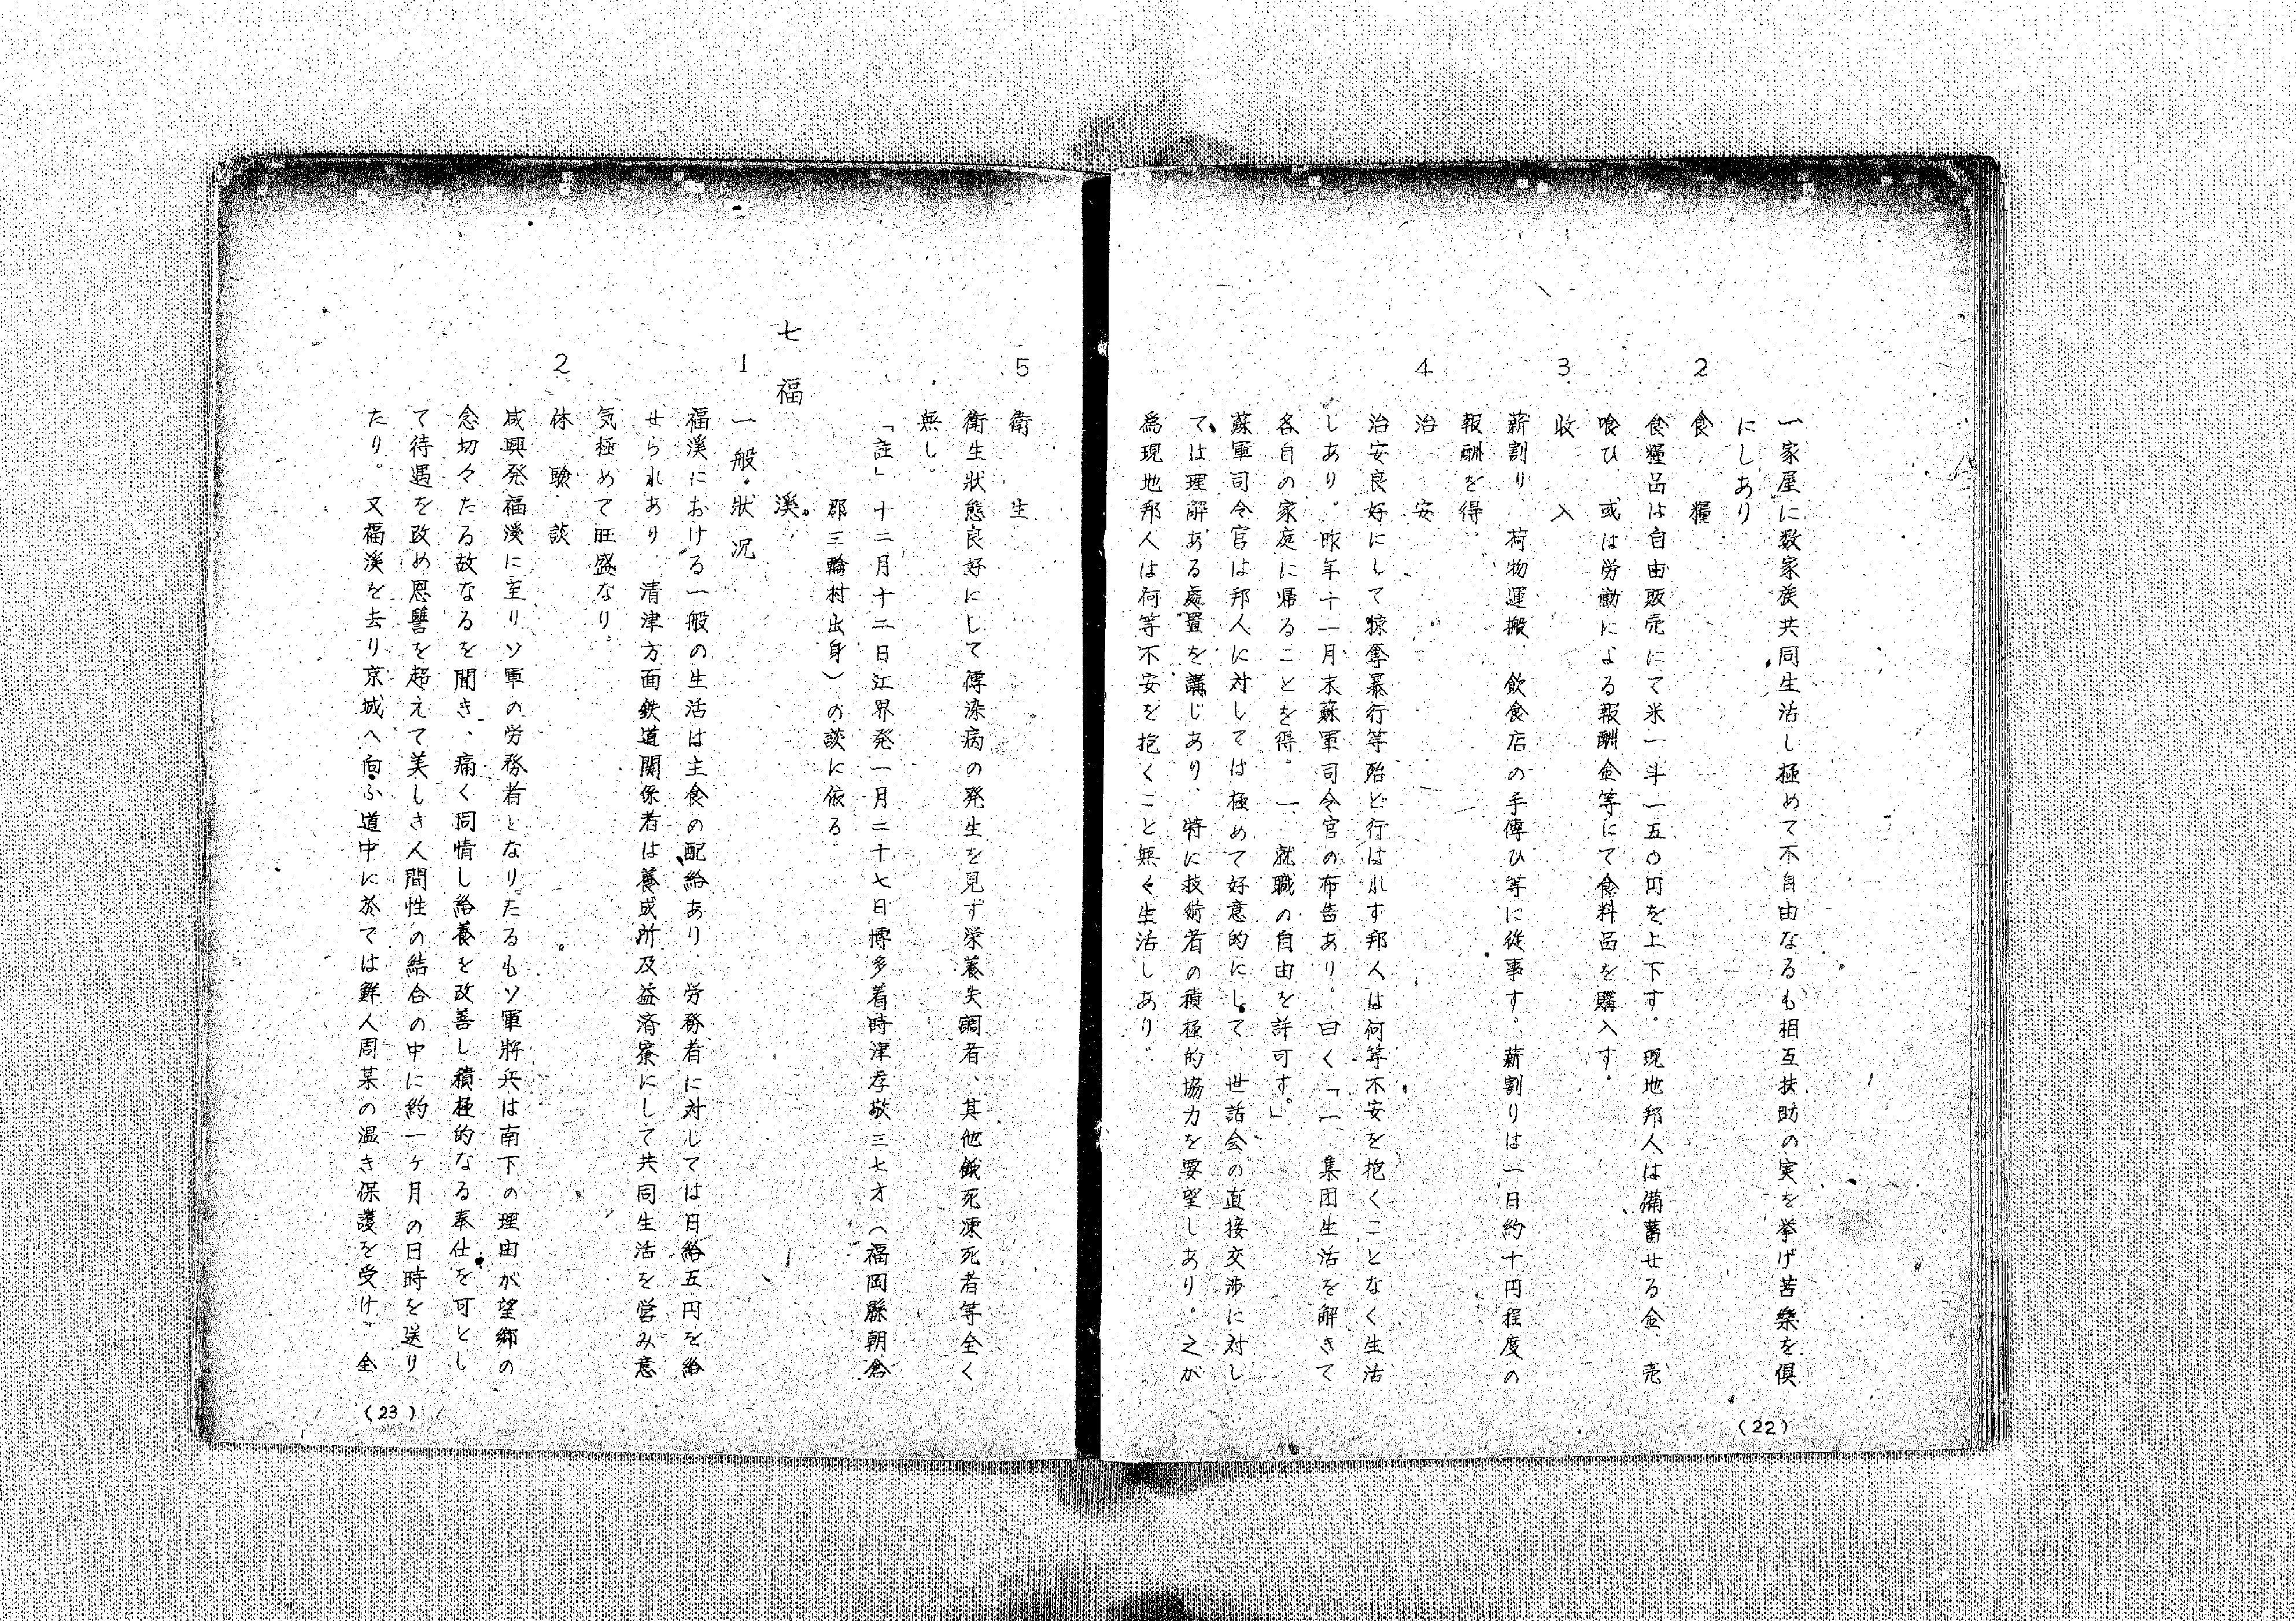 一家屋に数家族共同生活し極めて不自由なるも相互扶助の実を挙げ苦樂を倶
にしあり
2 食糧
食糧品は自由販売にて米一斗一五〇円を上下す。現地邦人は備蓄せる金、売
喰ひ 或は労働による報酬金等にて食料品を購入す。
3 收入
薪割り、荷物運搬、飲食店の手傳ひ等に従事す。薪割りは一日約十円程度の
報酬を得。
4 治安
治安良好にして掠奪暴行等殆ど行はれす邦人は何等不安を抱くことなく生活
しあり。昨年十一月末蘇軍司令官の布告あり。曰く「一、集団生活を解きて
各自の家庭に帰ることを得。一、就職の自由を許可す。」
蘇軍司令官は邦人に対しては極めて好意的にして、世話会の直接交渉に対し
ては理解ある處置を講じあり、特に技術者の積極的協力を要望しあり。之が
爲現地邦人は何等不安を抱くこと無く生活しあり。
(22)
5 衛生
衛生狀態良好にして傳染病の発生を見ず栄養失調者、其他餓死凍死者等全く
無し。
「註」十二月十二日江界発一月二十七日博多着時津孝敬三七才(福岡縣朝倉
郡三輪村出身)の談に依る。
七 福溪
1 一般狀況
福溪における一般の生活は主食の配給あり、労務者に対しては日給五円を給
せられあり 清津方面鉄道関係者は養成所及益済寮にして共同生活を営み意
気極めて旺盛なり。
2 体驗談
咸興発福溪に至りソ軍の労務者となりたるもソ軍將兵は南下の理由が望郷の
念切々たる故なるを聞き、痛く同情し給養を改善し積極的なる奉仕を可とし
て待遇を改め恩讐を超えて美しき人間性の結合の中に約一ヶ月の日時を送り
たり。又福溪を去り京城へ向ふ道中に於ては鮮人周某の温き保護を受け、全
(23)